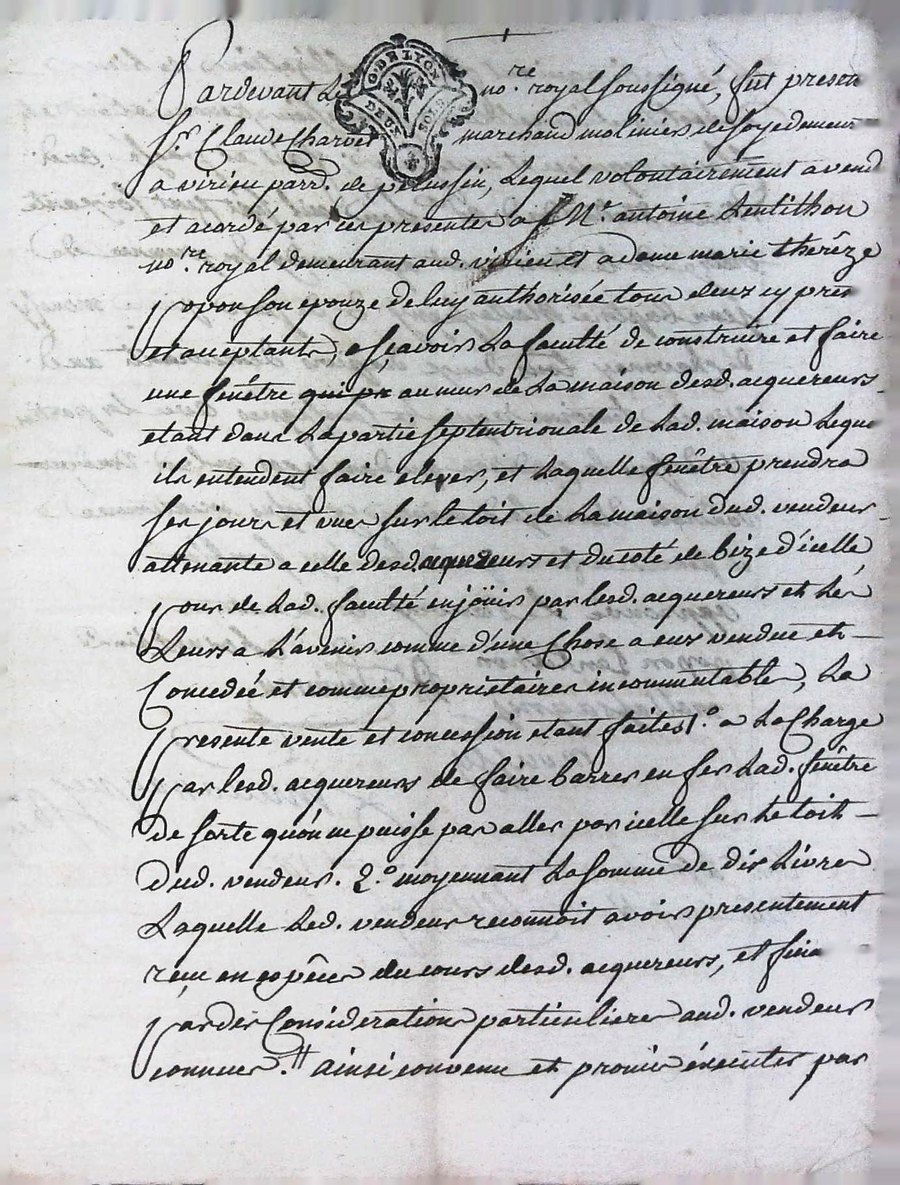 G. DE LYON
DEUX SOLS
Pardevant Le no.re royal soussigné, fut presen
Sr. Claude Charvet marchand molinier de soye demeur
a virieu parr. de pelussin, Lequel volontairement a vend
et acordé par ces presentes a Me. antoine Lentithon
no.re royal demeurant aud. virieu et a dame marie therêze
son epouze de luy authorisée tous deux cy pres
et acceptants, a sçavoir La faculté de construire et faire
une fenêtre au mur de La maison desd. acquereurs
etant dans La partie septentrionale de Lad. maison Leque
ils entendent faire elever, et Laquelle fenêtre prendra
ses jours et vues sur le toit de La maison dud. vendeur
attenante a celle desd. acquereurs et du coté de bize d'icelle
pour de Lad. faculté en joüir par lesd. acquereurs et Les
Leurs a L'avenir comme d'une Chose a eux vendue et
Concedée et comme proprietaires incommutables, La
presente vente et concession etant faites 1.° a La Charge
par lesd. acquereurs de faire barrer en fer Lad. fenêtre
de sorte qu'on ne puisse pas aller par icelle sur Le toit
dud. vendeur. 2.° moyennant La somme de dix Livres
Laquelle Led. vendeur reconnoit avoir presentement
reçu en espêces du cours desd. acquereurs, et
par des Considerations particulieres aud. vendeur
connues. // ainsi convenu et promis éxecuter par